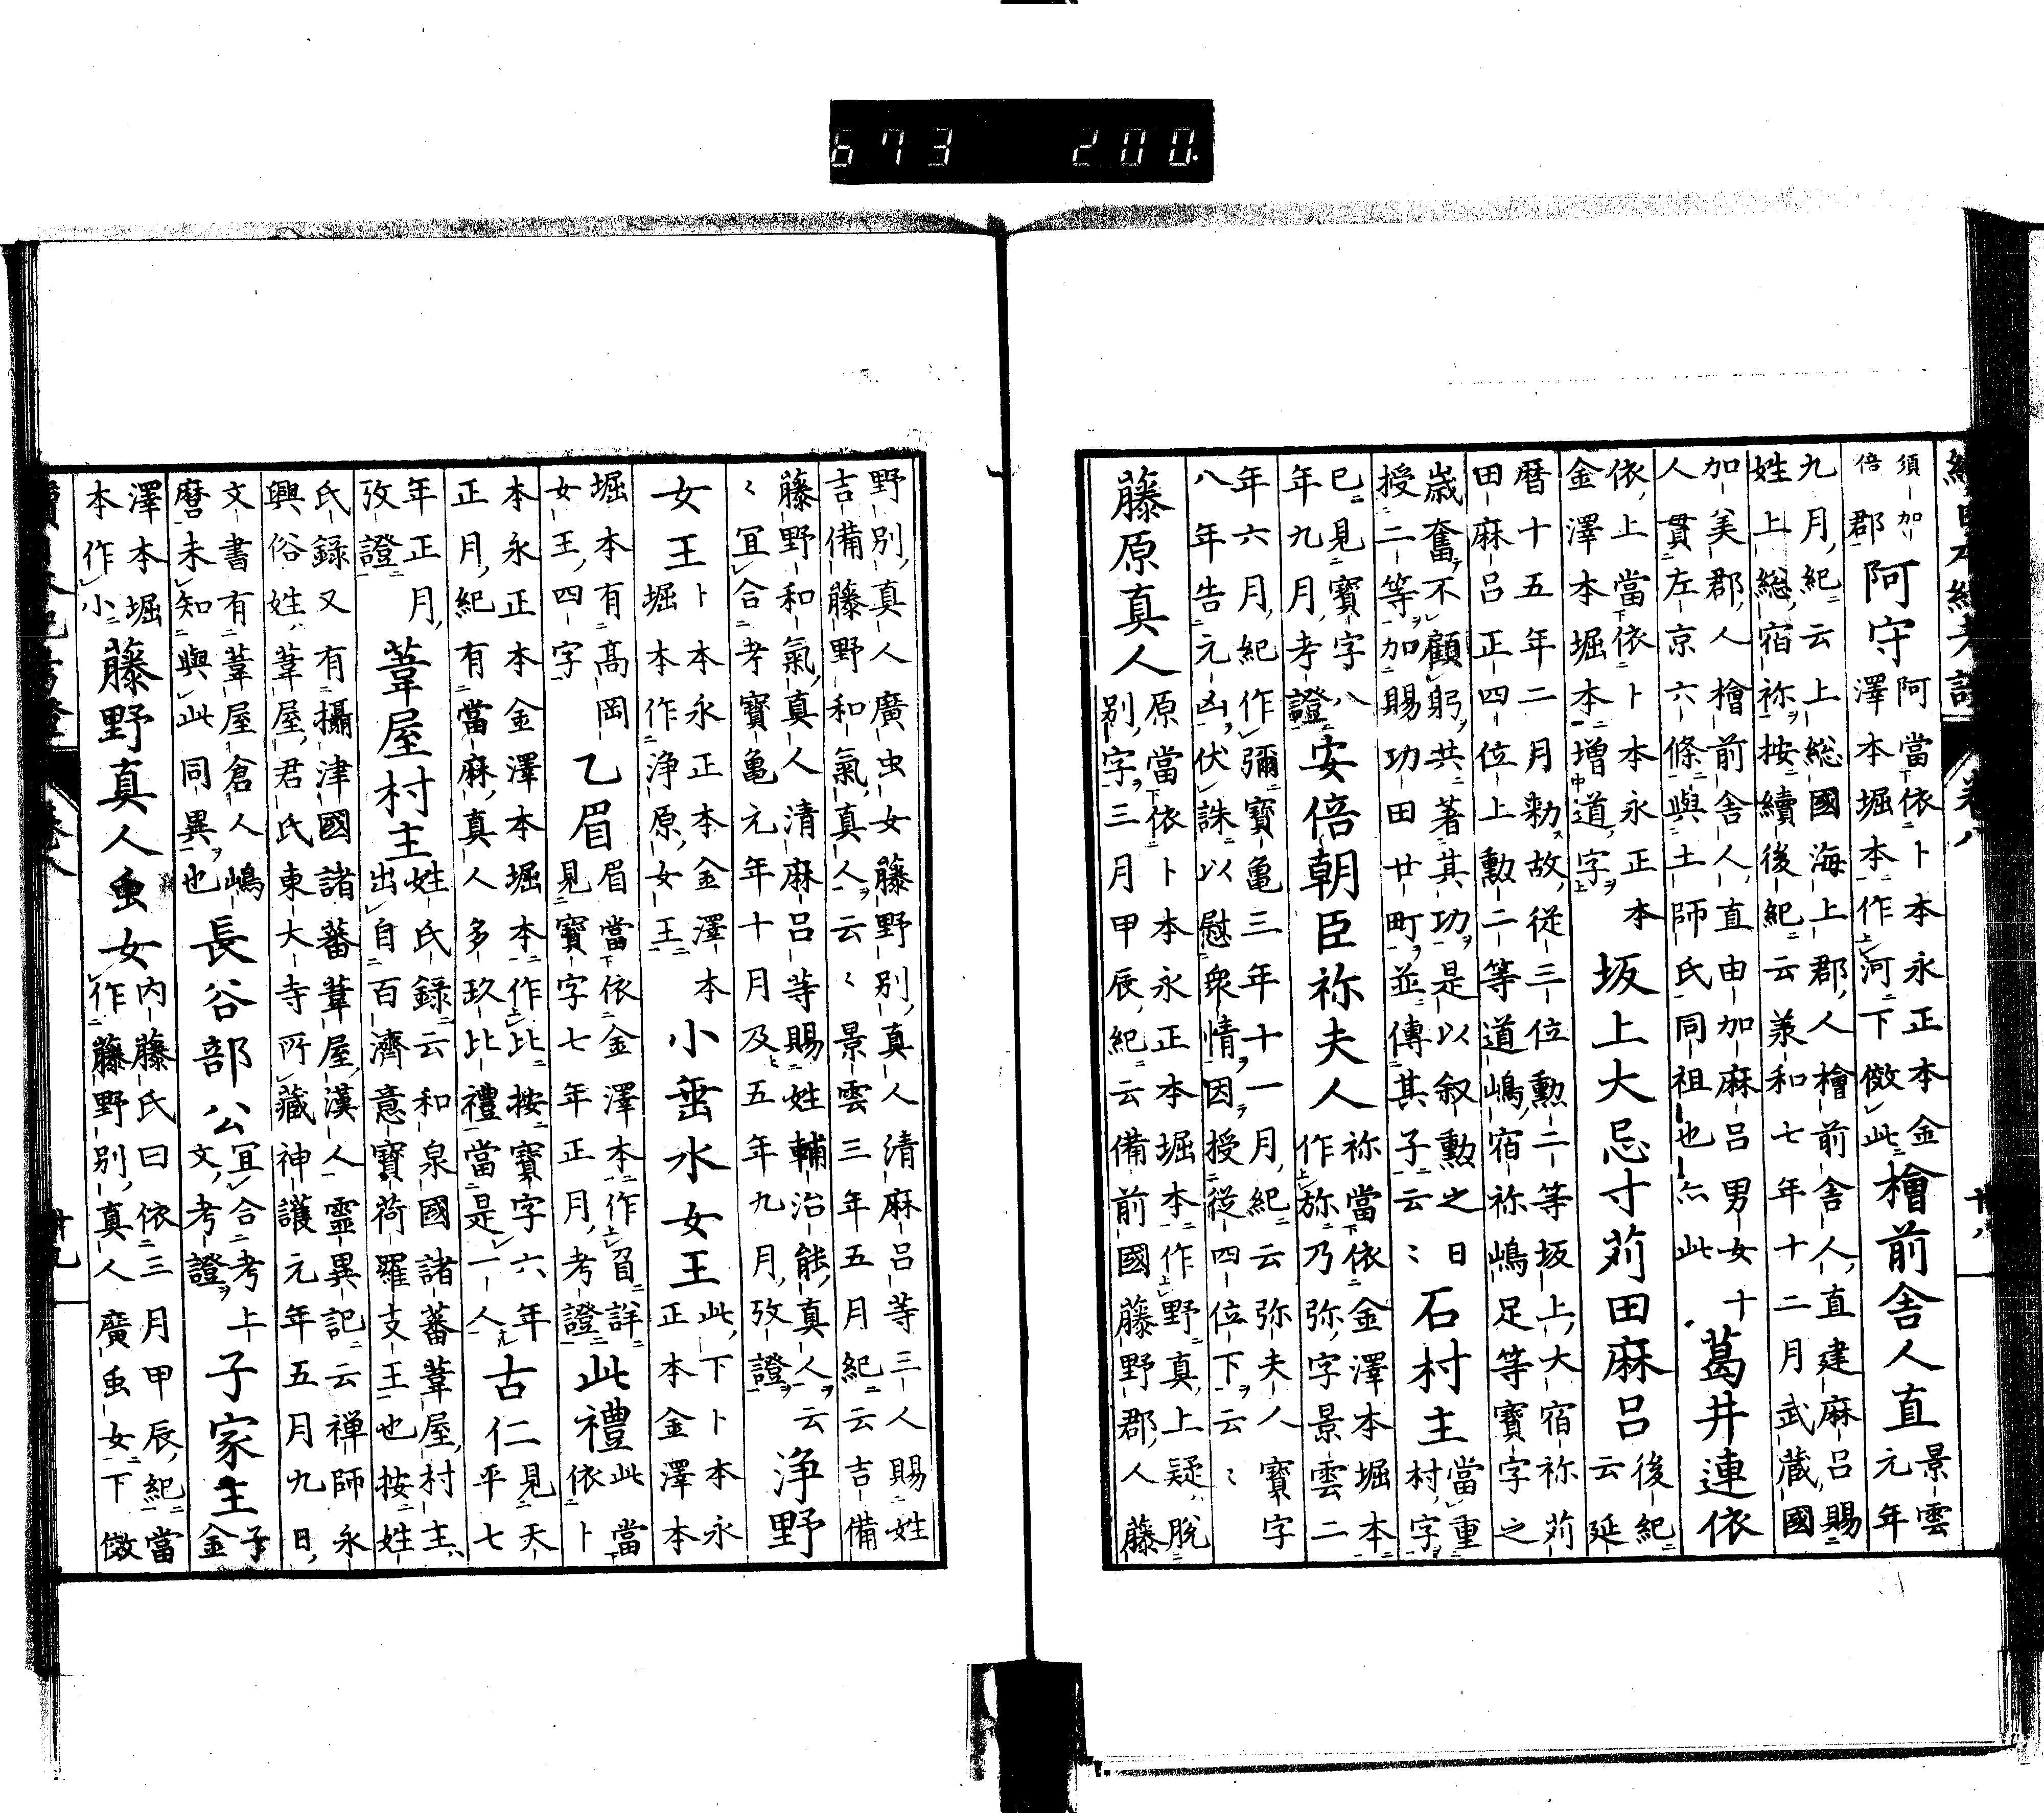 673 200.
須加倍郡阿守阿當依卜本永正本金澤本堀本作河下倣此檜前舎人直景雲元年
九月紀云上総國海上郡人檜前舎人直建麻呂賜姓上総宿祢按續後紀云義和七年十二月武蔵國
加美郡人檜前舎人直由加麻呂男女十人貫左京六條與土師氏同祖也亦此葛井連依
依上當依卜本永正本金澤本堀本増道字坂上大忌寸苅田麻呂後紀云延
暦十五年二月勅故従三位勲二等坂上大宿祢苅田麻呂正四位上勲二等道嶋宿祢嶋足等寳字之
歳奮不顧躬共著其功是以叙勲之日授二等加賜功田廿町並傳其子云〻石村主當重村字
巳見寳字八年九月考證安倍朝臣祢夫人祢當依金澤本堀本作旀乃弥字景雲二
年六月紀作彌寳亀三年十一月紀云弥夫人寳字八年告元凶伏誅以慰衆情因授従四位下云〻
藤原真人原當依卜本永正本堀本作野真上疑脱別字三月甲辰紀云備前國藤野郡人藤
野別真人廣虫女藤野別真人清麻呂等三人賜姓吉備藤野和氣真人云〻景雲三年五月紀云吉備
藤野和氣真人清麻呂等賜姓輔治能真人云〻宜合考寳亀元年十月及五年九月攷證浄野
女王卜本永正本金澤本堀本作浄原女王小垂水女王此下卜本永正本金澤本
堀本有高岡女王四字乙眉眉當依金澤本作眉詳見寳字七年正月考證此禮此當依卜
本永正本金澤本堀本作比按寳字六年正月紀有當麻真人多玖比禮當是一人古仁見天平七
年正月攷證葦屋村主姓氏録云和泉國諸蕃葦屋村主出自百濟意寳荷羅支王也按姓
氏録又有攝津國諸蕃葦屋漢人靈異記云禅師永興俗姓葦屋君氏東大寺所藏神護元年五月九日
文書有葦屋倉人嶋麿未知與此同異也長谷部公宜合考上文考證子家主子金
澤本堀本作小藤野真人虫女内藤氏曰依三月甲辰紀當作藤野別真人廣虫女下倣